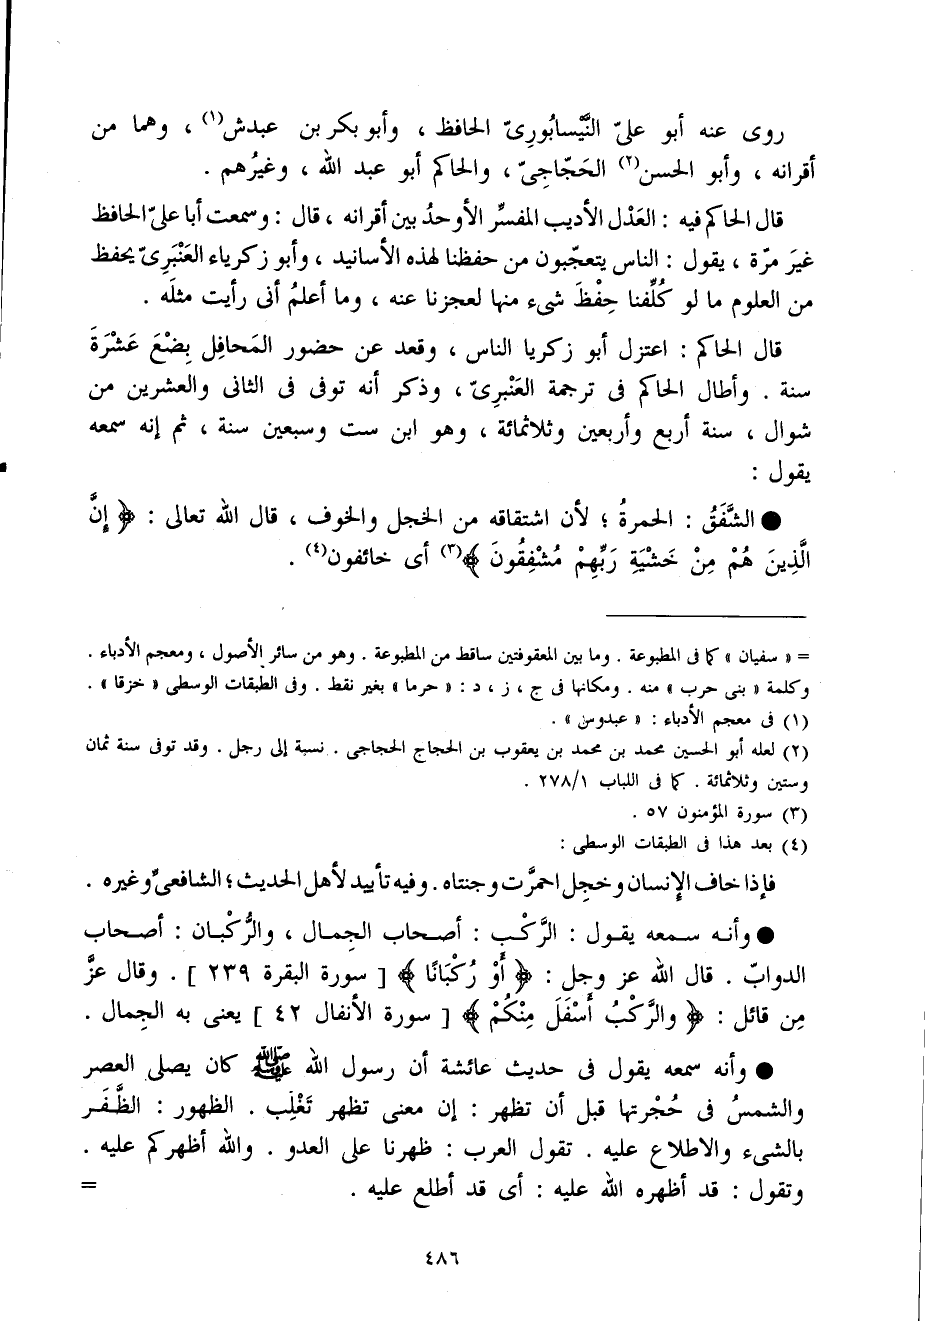 روى عنه أبو علىّ النَّيْسابُورىّ الحافظ ، وأبو بكر بن عبدش(١) ، وهما من
أقرانه ، وأبو الحسن(٢) الحَجّاجىّ ، والحاكم أبو عبد الله ، وغيرُهم .
قال الحاكم فيه : العَدْل الأديب المفسِّر الأوحدُ بين أقرانه ، قال : وسمعت أبا علىّ الحافظ
غيرَ مرّة ، يقول : الناس يتعجّبون من حفظنا لهذه الأسانيد ، وأبو زكرياء العَنْبَرىّ يحفظ
من العلوم ما لو كُلِّفنا حِفْظَ شىء منها لعجزنا عنه ، وما أعلمُ أنى رأيت مثلَه .
قال الحاكم : اعتزل أبو زكريا الناس ، وقعد عن حضور المَحافِل بِضْعَ عَشْرَةَ
سنة . وأطال الحاكم فى ترجمة العَنْبرىّ ، وذكر أنه توفى فى الثانى والعشرين من
شوال ، سنة أربع وأربعين وثلاثمائة ، وهو ابن ست وسبعين سنة ، ثم إنه سمعه
يقول :
● الشَّفَقُ : الحمرةُ ؛ لأن اشتقاقه من الخجل والخوف ، قال الله تعالى : ﴿ إِنَّ
الَّذِينَ هُمْ مِنْ خَشْيَةِ رَبِّهِمْ مُشْفِقُونَ ﴾(٣) أى خائفون(٤) .
= « سفيان » كما فى المطبوعة . وما بين المعقوفتين ساقط من المطبوعة . وهو من سائر الأصول ، ومعجم الأدباء .
وكلمة « بنى حرب » منه . ومكانها فى ج ، ز ، د : « حرما » بغير نقط . وفى الطبقات الوسطى « خزقا » .
(١) فى معجم الأدباء : « عبدوس » .
(٢) لعله أبو الحسين محمد بن محمد بن يعقوب بن الحجاج الحجاجى . نسبة إلى رجل . وقد توفى سنة ثمان
وستين وثلاثمائة . كما فى اللباب ٢٧٨/١ .
(٣) سورة المؤمنون ٥٧ .
(٤) بعد هذا فى الطبقات الوسطى :
فإذا خاف الإنسان وخجل احمرَّت وجنتاه . وفيه تأييد لأهل الحديث ؛ الشافعىّ وغيره .
● وأنه سمعه يقول : الرَّكْب : أصحاب الجِمال ، والرُّكْبان : أصحاب
الدوابّ . قال الله عز وجل : ﴿ أَوْ رُكْبَانًا ﴾ [ سورة البقرة ٢٣٩ ] . وقال عزَّ
مِن قائل : ﴿ والرَّكْبُ أَسْفَلَ مِنْكُمْ ﴾ [ سورة الأنفال ٤٢ ] يعنى به الجِمال .
● وأنه سمعه يقول فى حديث عائشة أن رسول الله ﷺ كان يصلى العصر
والشمسُ فى حُجْرتها قبل أن تظهر : إن معنى تظهر تَغْلِب . الظهور : الظَّفَر
بالشىء والاطلاع عليه . تقول العرب : ظهرنا على العدو . والله أظهركم عليه .
وتقول : قد أظهره الله عليه : أى قد أطلع عليه . =
٤٨٦